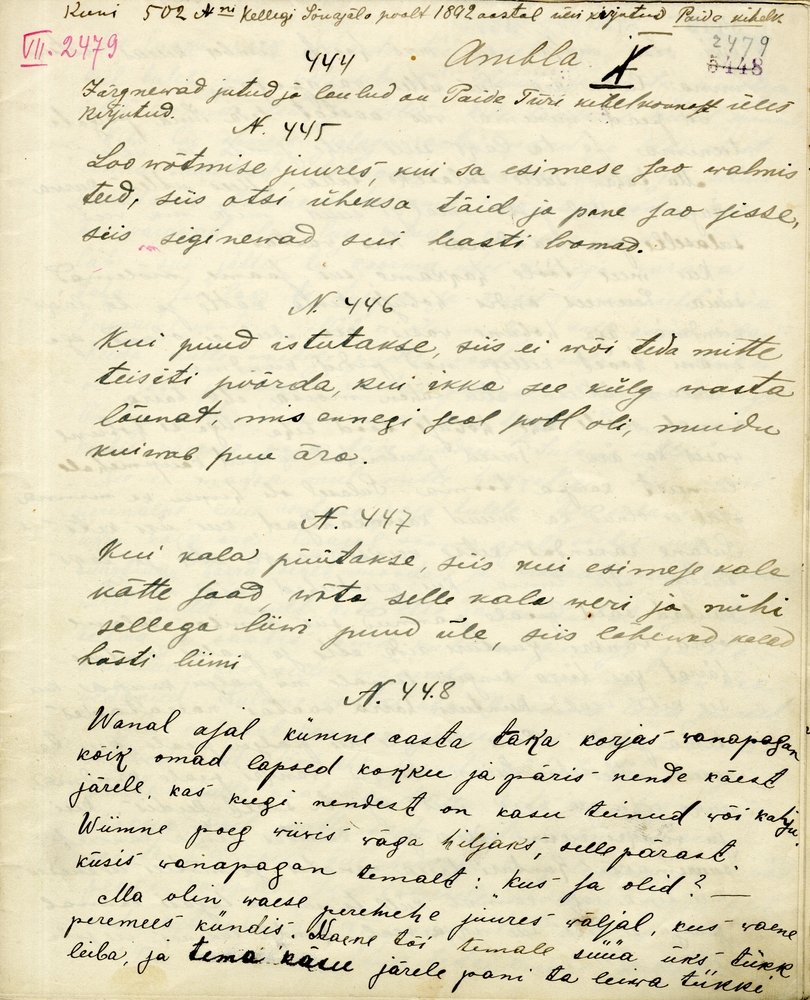 Kuni 502 N ni Kellegi Sõnajala poolt 1892 aastal üles kirjutud Paide kihelk
VII. 2479
2479
444 Ambla X
6448
Järgnewad jutud ja laulud on Paide Türi kihelkonnast üles
kirjutud.
N. 445
Loo wõtmise juures, kui sa esimese sao walmis
teed, siis otsi üheksa täid ja pane sao sisse,
siis siginewad sui hasti loomad.
N. 446
Kui puud istutakse, siis ei wõi teda mitte
teisiti pöörda, kui ikka see külg wasta
lõunat, mis ennegi seal pool oli, muidu
kuiwab puu ära.
N. 447
Kui kala püütakse, siis kui esimese kala
kätte saad, wõta selle kala weri ja nühi
sellega liiwi puud üle, siis lähewad kalad
hästi liimi
N. 448
Wanal ajal kümne aasta taka korjas wanapagan
kõik omad lapsed kokku ja päris nende käest
järele, kas keegi nendest on kasu teinud wõi kahju.
Wiimne poeg wiiwis wäga hiljaks, sellepärast
küsis wanapagan temalt: kus sa olid? —
Ma olin waese peremehe juures wäljal, kus waene
peremees kündis. Naene tõi temale süüa üks tükk
leiba, ja tema käsu järele pani ta leiwa tükki